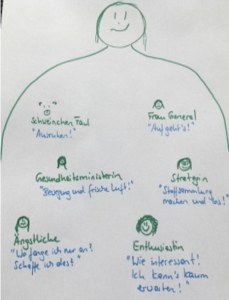 Schweinchen Faul
"Ausruhen!"
Frau General
"Auf geht's!"
Gesundheitsministerin
"Bewegung und frische Luft!"
Strategin
"Stoffsammlung
machen und los!"
Ängstliche
"Wo fange ich nur an?
Schaffe ich das?"
Enthusiastin
"Wie interessant!
Ich kann's kaum
erwarten!"